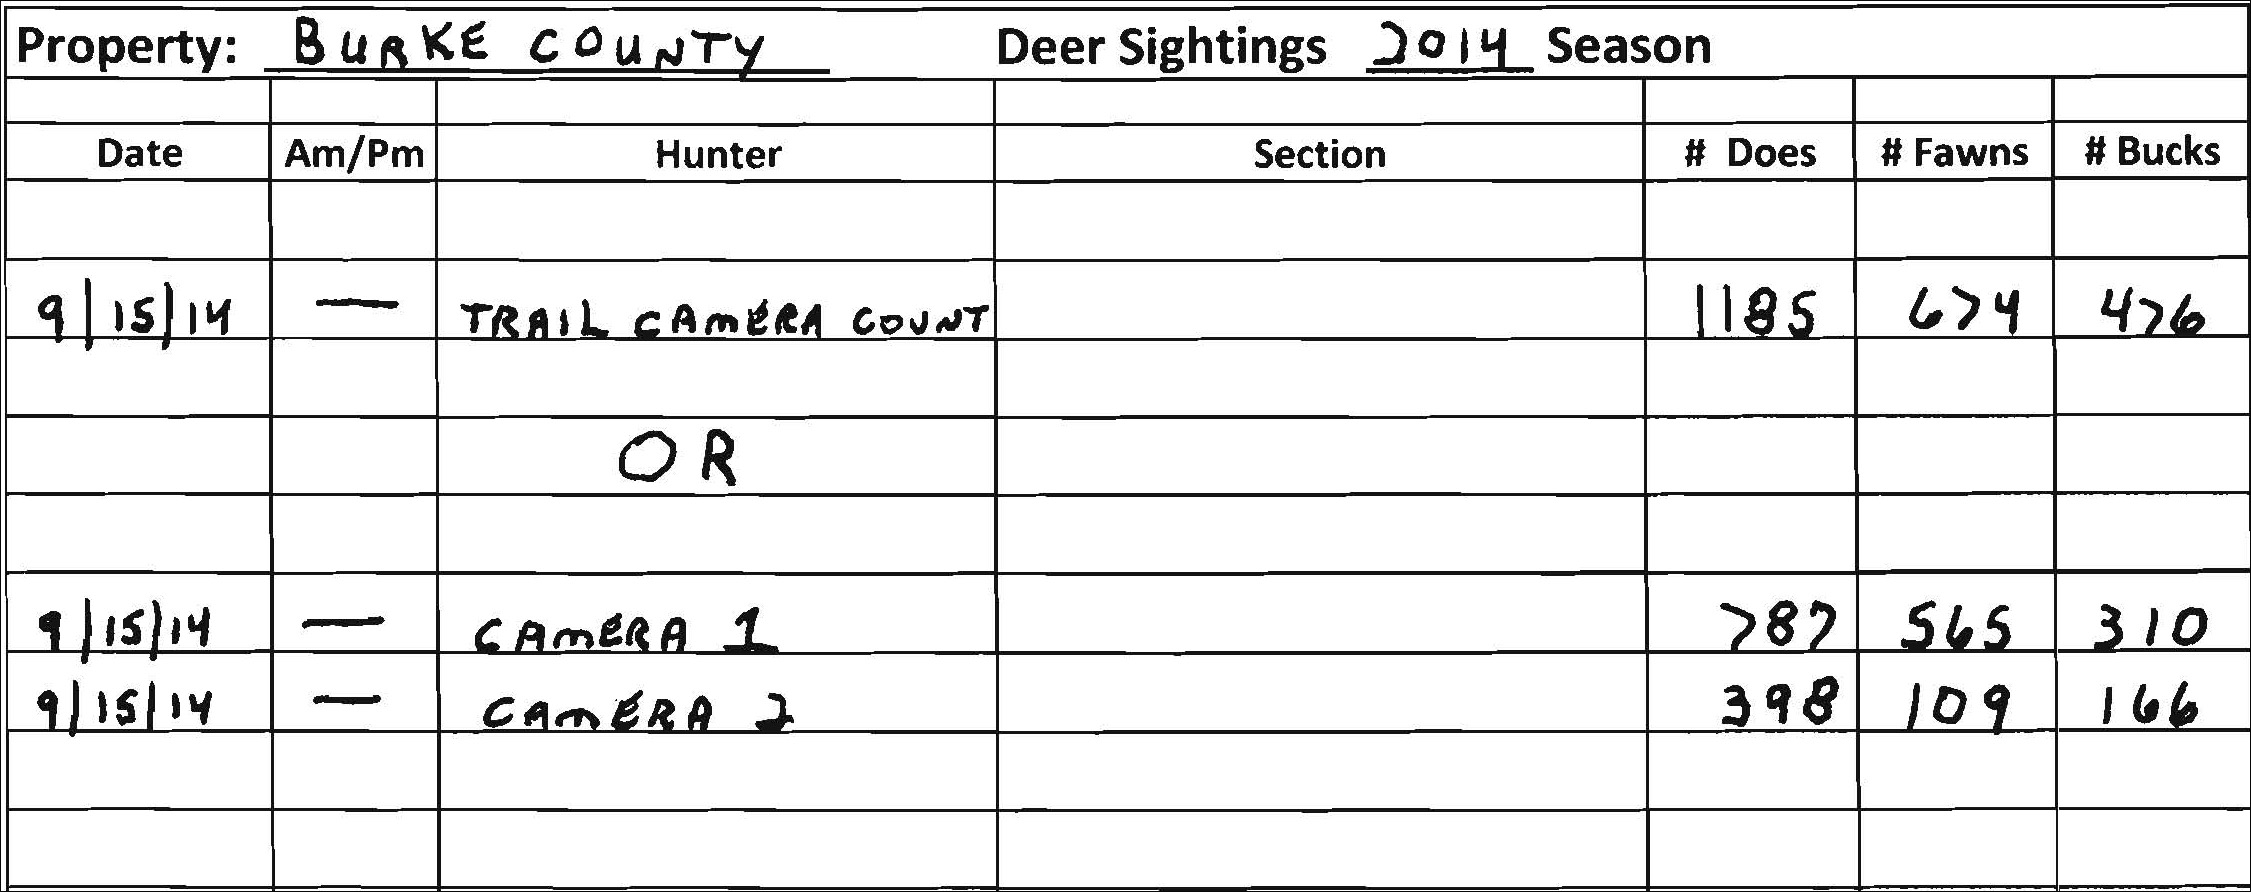 Property: BURKE COUNTY Deer Sightings 2014 Season
Date Am/Pm Hunter Section # Does # Fawns # Bucks
9/15/14 — TRAIL CAMERA COUNT 1185 674 476
OR
9/15/14 — CAMERA 1 787 565 310
9/15/14 — CAMERA 2 398 109 166